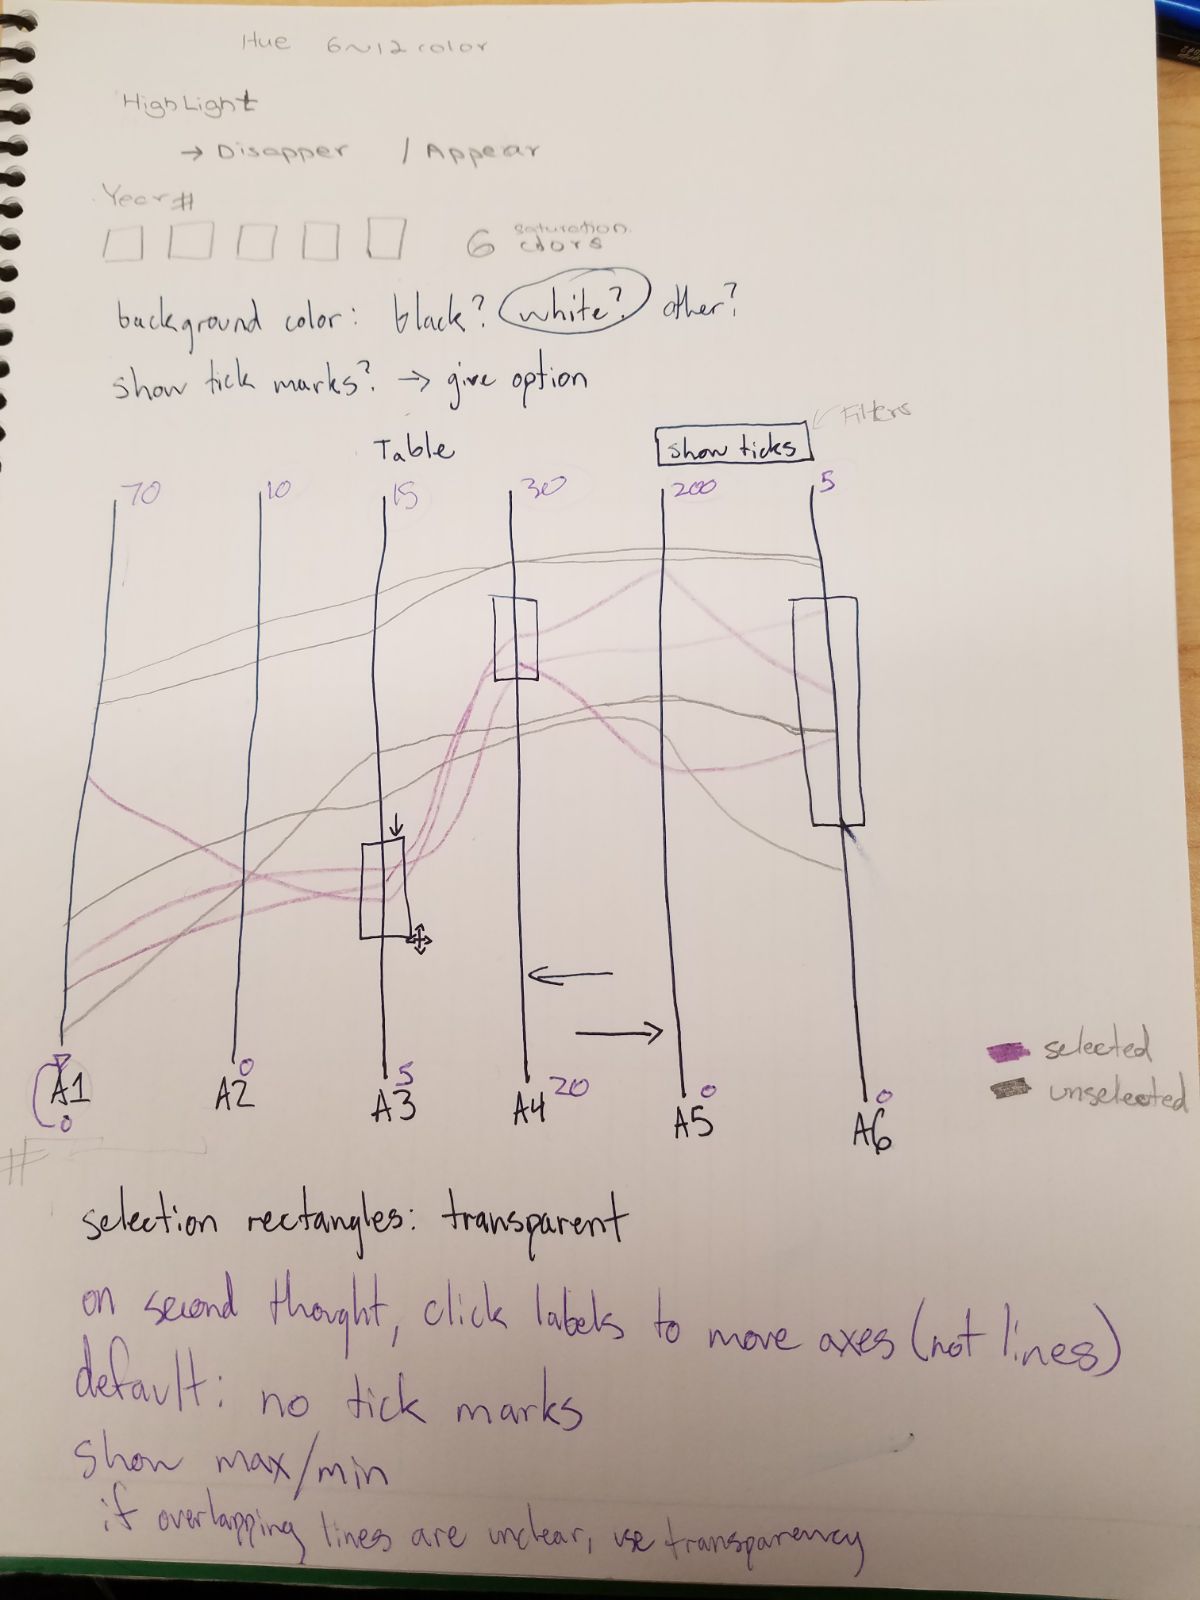 Hue 6~12 color
HighLight
→ Disapper / Appear
Year #
6 saturation colors
background color: black? white? other?
show tick marks? → give option
Filters
Table
show ticks
70 10 15 30 200 5
selected
unselected
0 5 20 0 0
A1 A2 A3 A4 A5 A6
0
#
selection rectangles: transparent
on second thought, click labels to move axes (not lines)
default: no tick marks
show max/min
if overlapping lines are unclear, use transparency